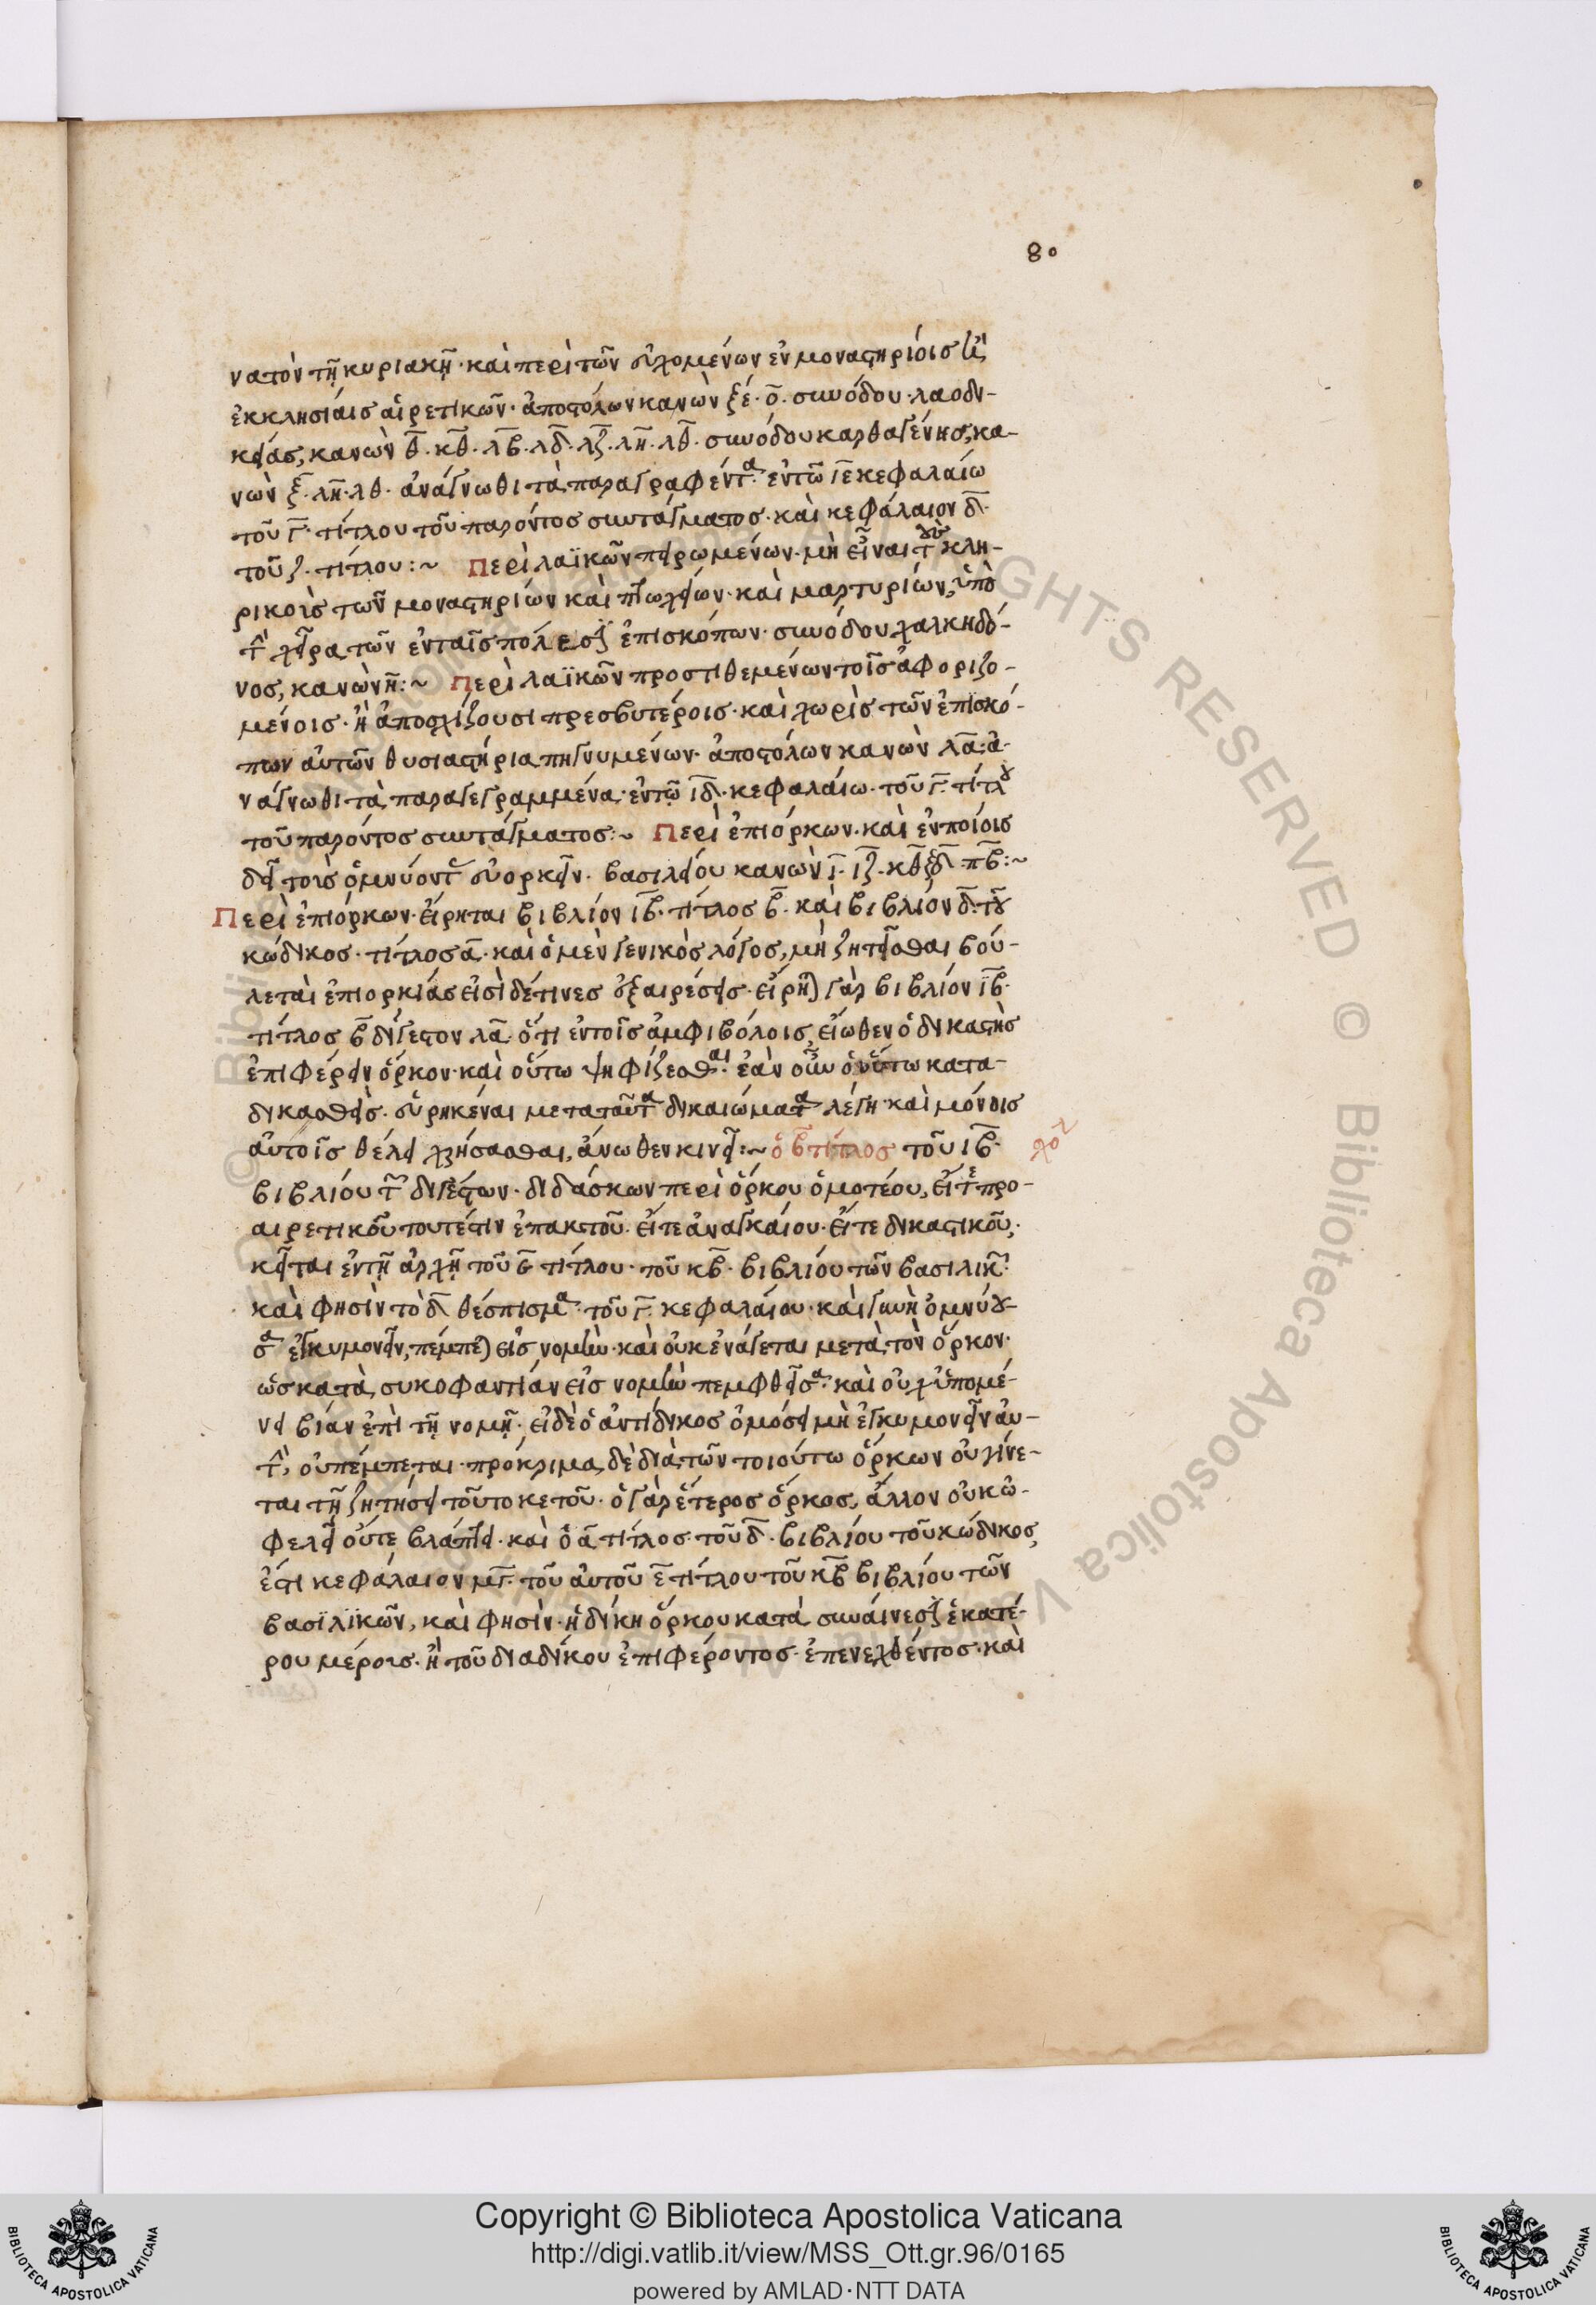 80
νατὸν τῇ κυριακῇ· καὶ περὶ τῶν εὐχομένων ἐν μοναστηρίοις ἢ
ἐκκλησίαις αἱρετικῶν· ἀποστόλων κανὼν ξέ· ο̄· συνόδου λαοδι-
κείας, κανὼν θ̄· κθ̄· λβ̄· λδ̄· λζ̄· λη̄· λθ̄· συνόδου καρθαγένης, κα-
νὼν ξ̄· λη̄· λθ· ἀνάγνωθι τὰ παραγραφέντα ἐν τῶ ιε̄ κεφαλαίω
τοῦ γ̄· τίτλου τοῦ παρόντος συντάγματος· καὶ κεφάλαιον δ̄
τοῦ ζ· τίτλου:~ Περὶ λαϊκῶν πειρωμένων· μὴ εἶναι τοὺς κλη-
ρικοὺς τῶν μοναστηρίων καὶ πτωχείων· καὶ μαρτυρίων, ὑπὸ
τὴν χεῖρα τῶν ἐν ταῖς πόλεσιν ἐπισκόπων· συνόδου χαλκηδό-
νος, κανὼν η̄:~ Περὶ λαϊκῶν προστιθεμένων τοῖς ἀφοριζο-
μένοις· ἢ ἀποσχίζουσι πρεσβυτέροις· καὶ χωρὶς τῶν ἐπισκό-
πων αὐτῶν θυσιαστήρια πηγνυμένων· ἀποστόλων κανὼν λᾱ· ἀ-
νάγνωθι τὰ παραγεγραμμένα· ἐν τῶ ιδ̄· κεφαλαίω· τοῦ γ̄· τίτλου
τοῦ παρόντος συντάγματος:~ Περὶ ἐπιόρκων· καὶ ἐν ποίοις
δεῖ τοὺς ὀμνύοντας εὐορκεῖν· βασιλείου κανὼν ῑ· ιζ̄· κθ̄ ξδ̄ πβ̄:~
Περὶ ἐπιόρκων· εἴρηται βιβλίον ιβ̄· τίτλος β̄· καὶ βιβλίον δ̄· τοῦ
κώδικος· τίτλος ᾱ· καὶ ὁ μὲν γενικὸς λόγος, μὴ ζητεῖσθαι βού-
λεται ἐπιορκίας εἰσὶ δέ τινες ἐξαιρέσεις· εἴρηται γὰρ βιβλίον ιβ̄·
τίτλος β̄ δίγεστον λᾱ· ὅτι ἐν τοῖς ἀμφιβόλοις, εἴωθεν ὁ δικαστὴς
ἐπιφέρειν ὅρκον· καὶ οὕτω ψηφίζεσθαι· ἐὰν οὖν ὁ οὕτω κατα-
δικασθεὶς· εὑρηκέναι μετὰ ταῦτα δικαιώματα λέγη· καὶ μόνοις
αὐτοῖς θέλει χρήσασθαι, ἄνωθεν κινεῖ:~ ὁ β̄ τίτλος τοῦ ιβ̄·
βιβλίου τῶν διγέστων· διδάσκων περὶ ὅρκου ὁμοτέου, εἴτε προ-
αιρετικοῦ τουτέστιν ἐπακτοῦ· εἴτε ἀναγκαίου· εἴτε δικαστικοῦ,
κεῖται ἐν τῇ ἀρχῇ τοῦ ε̄ τίτλου· τοῦ κβ̄· βιβλίου τῶν βασιλικῶν·
καὶ φησὶν τὸ δ̄ θέσπισμα· τοῦ γ̄· κεφαλαίου· καὶ γυνὴ ὀμνύου-
σα ἐγκυμονεῖν, πέμπεται εἰς νομὴν· καὶ οὐκ ἐνάγεται μετὰ τὸν ὅρκον·
ὡς κατὰ συκοφαντίαν εἰς νομὴν πεμφθεῖσα· καὶ οὐχ ὑπομέ-
νει βίαν ἐπὶ τῇ νομῇ· εἰ δὲ ὁ ἀντίδικος ὀμόσει μὴ ἐγκυμονεῖν αὐ-
τὴν, οὐ πέμπεται· πρόκριμα δὲ διὰ τῶν τοιούτω ὅρκων οὐ γίνε-
ται τῇ ζητήσει τοῦ τοκετοῦ· ὁ γὰρ ἕτερος ὅρκος, ἄλλον οὐκ ὠ-
φελεῖ οὔτε βλάπτει· καὶ ὁ ᾱ τίτλος τοῦ δ̄· βιβλίου τοῦ κώδικος,
ἔστι κεφάλαιον μγ̄· τοῦ αὐτοῦ ε̄ τίτλου τοῦ κβ̄ βιβλίου τῶν
βασιλικῶν, καὶ φησὶν· ἡ δίκη ὅρκου κατὰ συναίνεσιν ἑκατέ-
ρου μέρους· ἢ τοῦ διαδίκου ἐπιφέροντος· ἐπενεχθέντος· καὶ
Copyright © Biblioteca Apostolica Vaticana
http://digi.vatlib.it/view/MSS_Ott.gr.96/0165
powered by AMLAD·NTT DATA